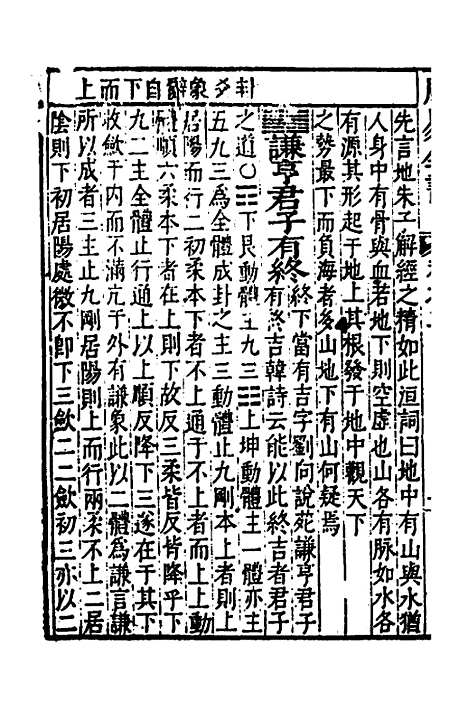 卦爻象辭自下而上
先言地朱子解經之精如此洹詞曰地中有山與水猶
人身中有骨與血若地下則空虛也山各有脉如水各
有源其形起于地上其根發于地中觀天下
之勢最下而負海者多山地下有山何疑焉
謙亨君子有終終下當有吉字劉向說苑謙亨君子
有終吉韓詩云能以此終吉者君子
之道〇☶下艮動體主九三☷上坤動體主一體亦主
五九三爲全體成卦之主三動體止九剛本上者則上
居陽而行二初柔本下者不上通于不上者而上上動
體順六柔本下者在上則下故反三柔皆反皆降乎下
九二主全體止行通上以上順反降下三遂在于其下
收斂于内而不滿亢于外有謙象此以二體爲謙言謙
所以成者三主止九剛居陽則上而行兩柔不上二居
陰則下初居陽處微不卽下三斂二二斂初三亦以二